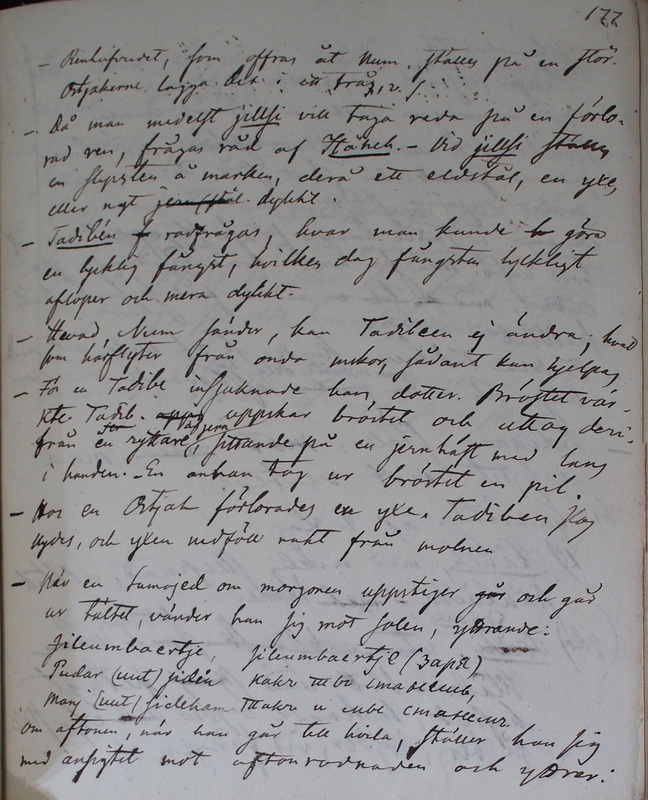 177
– Renhufvudet, som offras åt Num, ställes på en stör.
Ostjakerne lägga det i ett träd, o. s. v.
– Då man medelst jillsi vill taga reda på en förlo-
rad ren, frågas råd af Häheh. – Vid jillsi ställes
en slipsten å marken, derå ett eldstål, en yxe,
eller ngt dylikt.
– Tadibén rådfrågas, hvar man kunde göra
en lycklig fångst, hvilken dag fångsten lyckligt
afloper och mera dylikt.
– Hvad Num sänder, kan Tadibeen ej ändra; hvad
som härflyter från onda makter, sådant kan hjelpas.
– För en Tadibe insjuknade hans dotter. Bröstet vär-
kte. Tadib. uppskar bröstet och uttog deri-
från en ryttare, sittande på en jernhäst med lans
i handen. – En annan tog ur bröstet en pil.
– Hos en Ostjak förlorades en yxe. Tadiben
ydes, och yxen nedföll rakt från molnen
– När en Samojed om morgonen uppstiger och går
ur tältet, vänder han sig mot solen, yttrande:
Jileumbaertje, jileumbaertje (заря)
Pudar (uut) jidén какъ тебе
Manj (uut) jideham такъ и мне
om aftonen, när han går till hvila, ställer han sig
med ansigtet mot aftonrodnaden och yttrar: